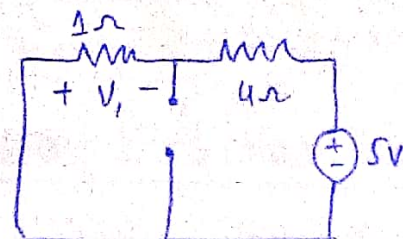 1Ω
+ V₁ -
4Ω
+
-
5V